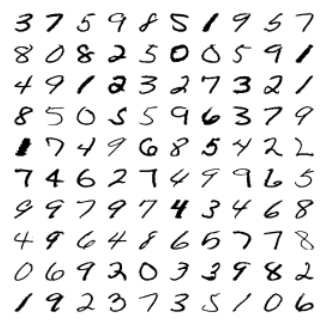 3 7 5 9 8 5 1 9 5 7
8 0 8 2 5 0 0 5 9 1
4 9 1 2 3 2 7 3 2 1
8 5 0 5 5 9 6 3 7 9
1 7 4 9 6 8 5 4 2 2
7 4 6 2 7 4 9 9 6 5
9 9 7 9 7 4 3 4 6 8
4 9 6 4 8 6 5 7 7 8
0 6 9 2 0 3 3 9 8 2
1 9 2 3 7 3 5 1 0 6